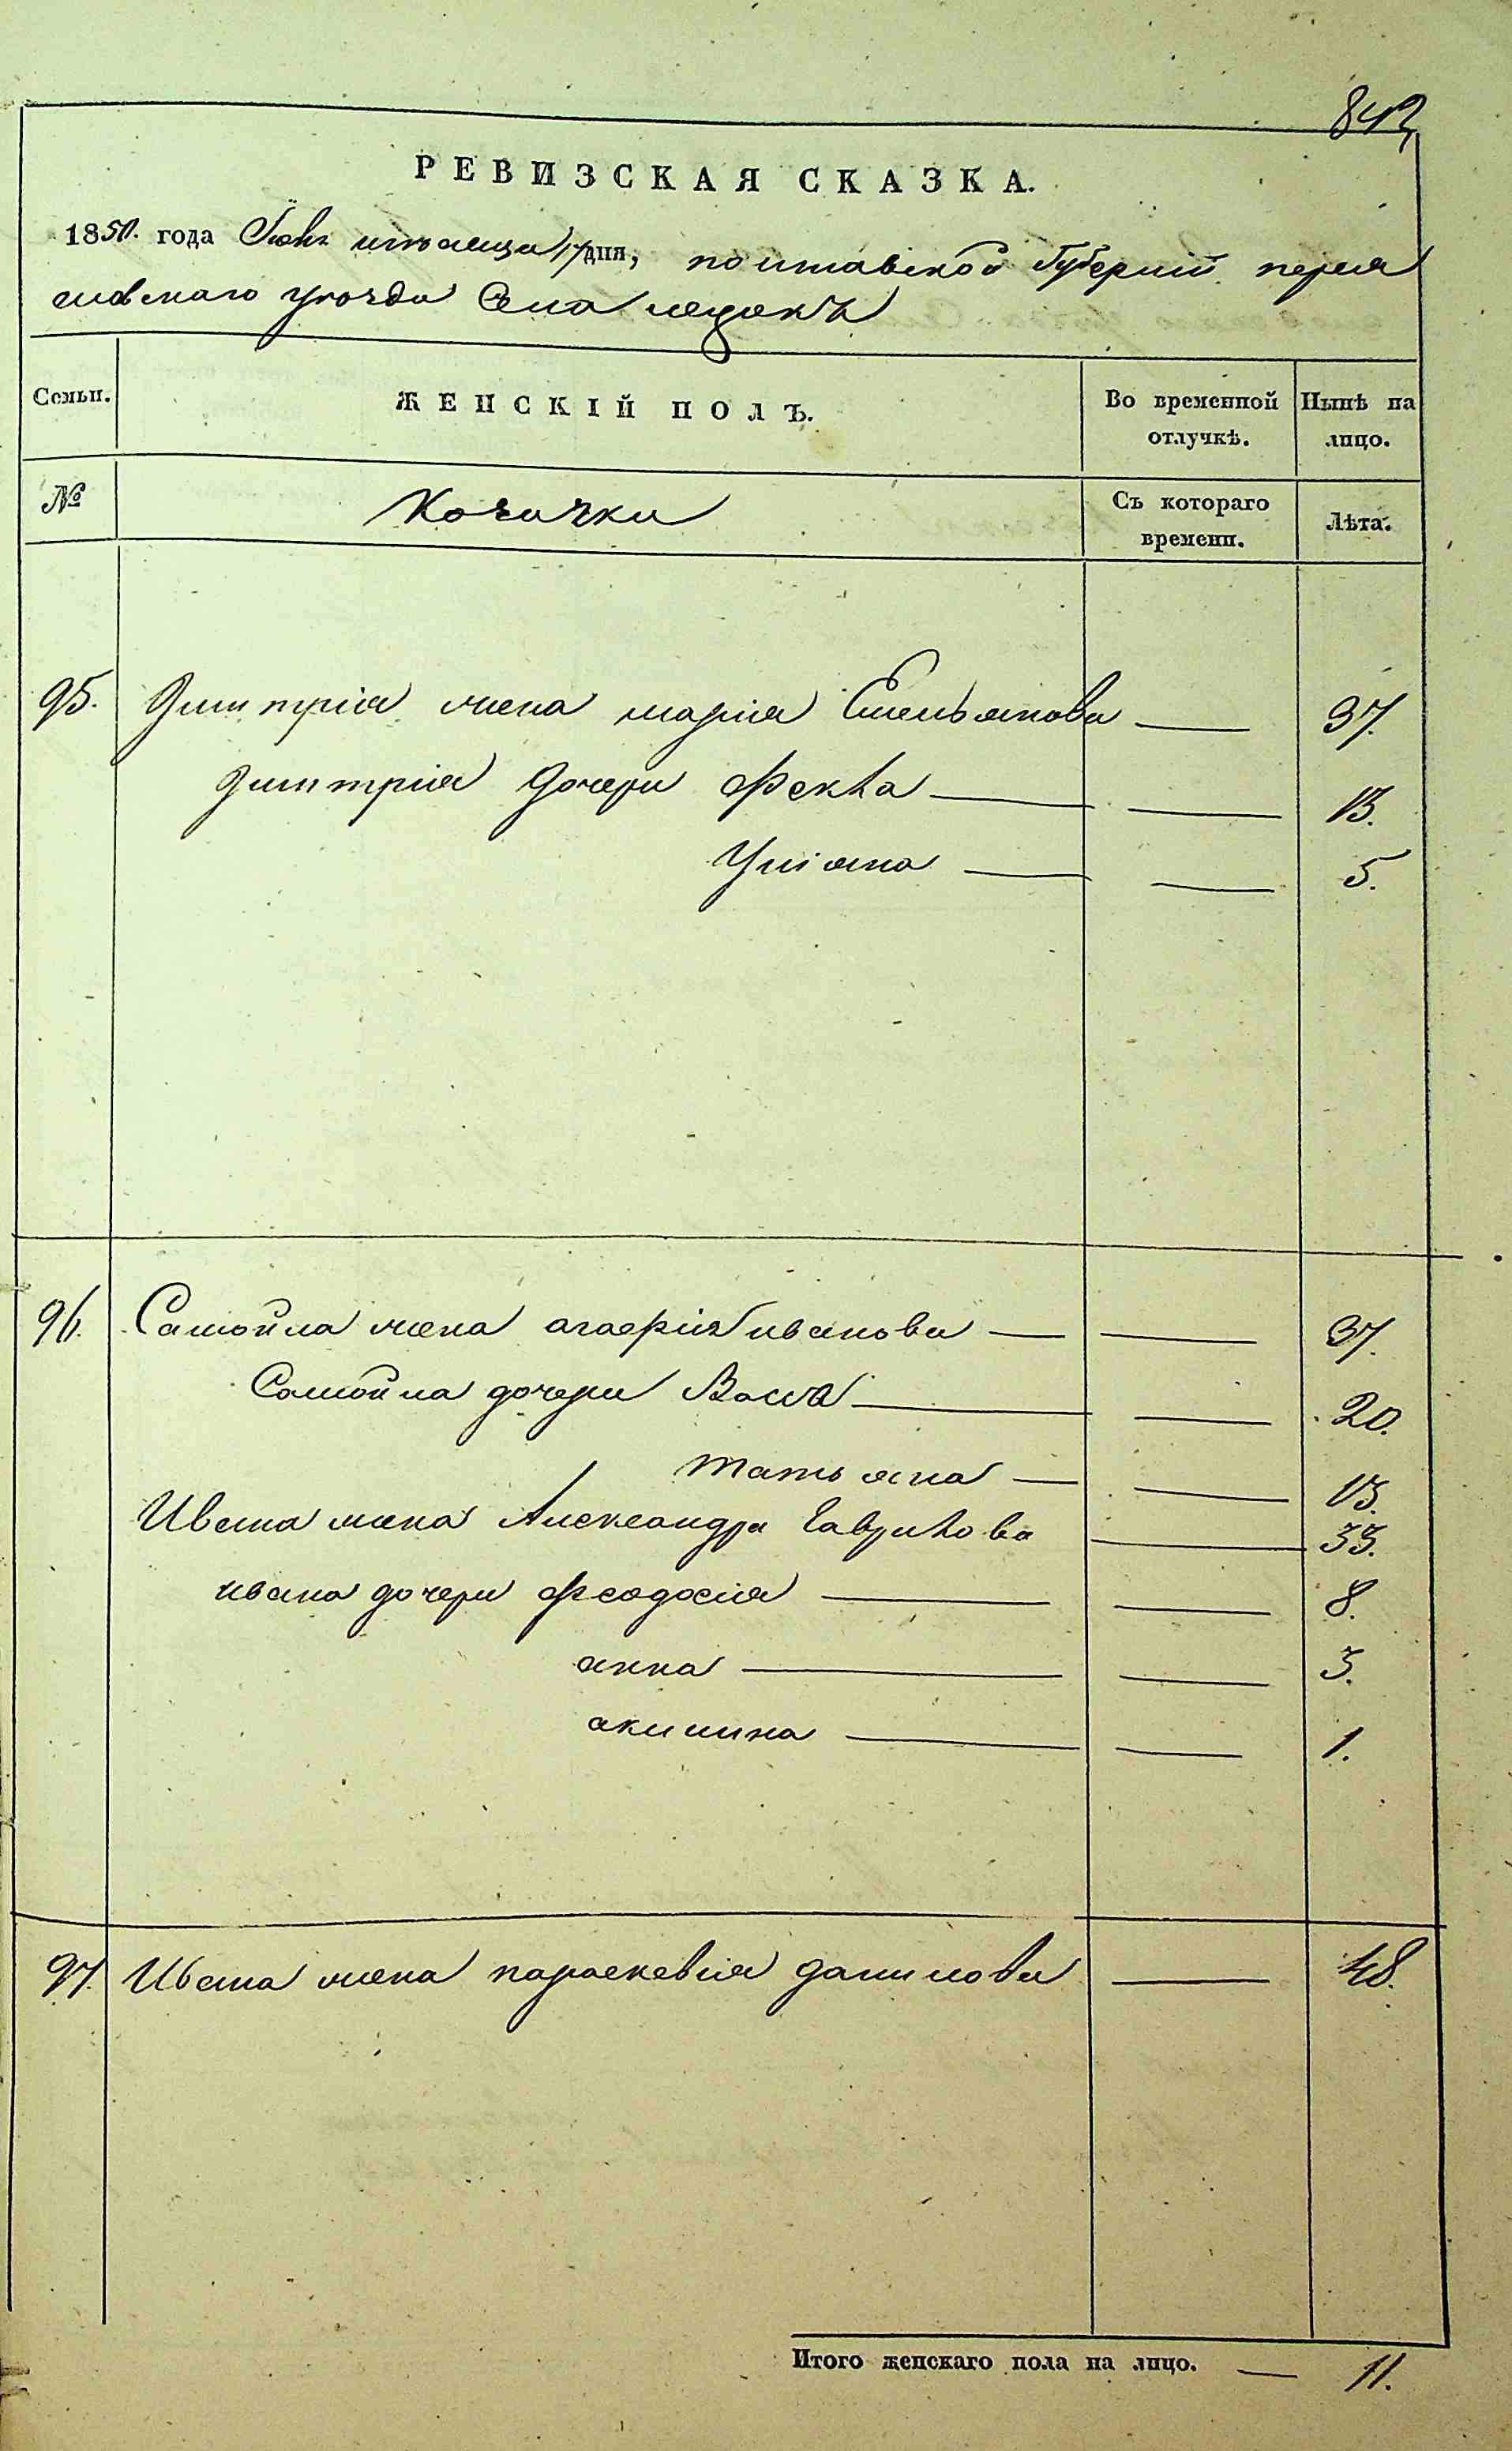 842
РЕВИЗСКАЯ СКАЗКА.
1850. года Июня мѣсяца 17 дня, полтавской Губерніи перея
славскаго уѣзда Села
Семьи. ЖЕНСКІЙ ПОЛЪ. Во временной отлучкѣ. Нынѣ на лицо.
№ Козачки Съ котораго времени. Лѣта.
95. Димитрія жена марія Емельянова — 37.
Димитрія дочери Фекла — — 13.
Уліяна — — 5.
96. Самойла жена агафія иванова — — 37.
Самойла дочери Васса — — 20.
татьяна — — 13.
Ивана жена Александра Гаврилова — 33.
ивана дочери Феодосія — — 8.
анна — — 3.
акилина — — 1.
97. Ивана жена параскевія данилова — 48.
Итого женскаго пола на лицо. — 11.